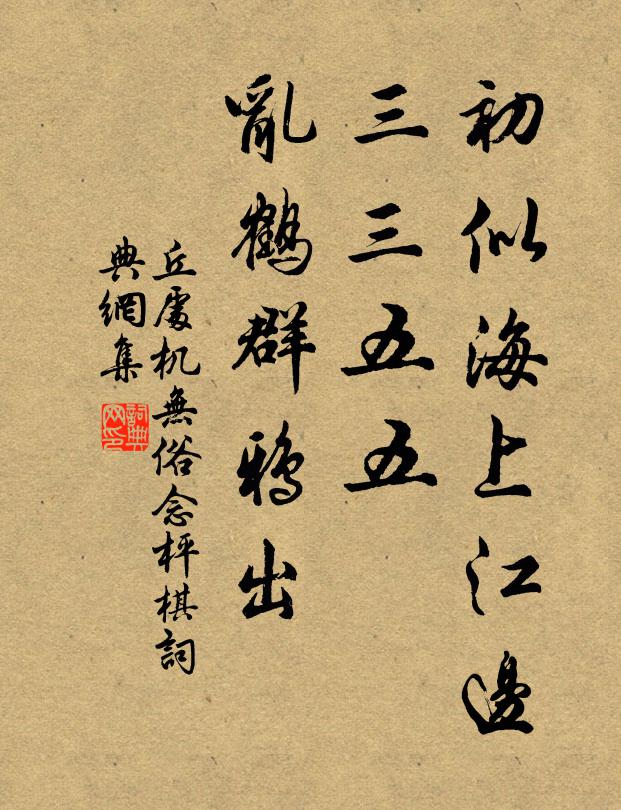 初似海上江邊
三三五五
亂鶴群鴉出
丘處机無俗念枰棋詞
典網集
詞典网印